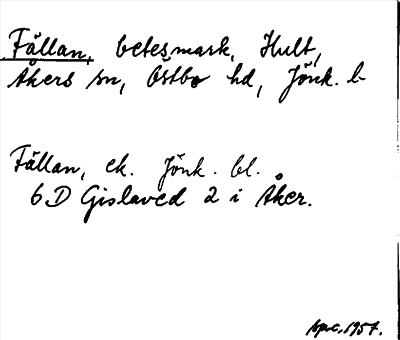 Fållan, betesmark, Hult,
Åkers sn, Östbo hd, Jönk. l
Fållan, ek. Jönk. bl.
6 D Gislaved 2 i Åker.
1957.